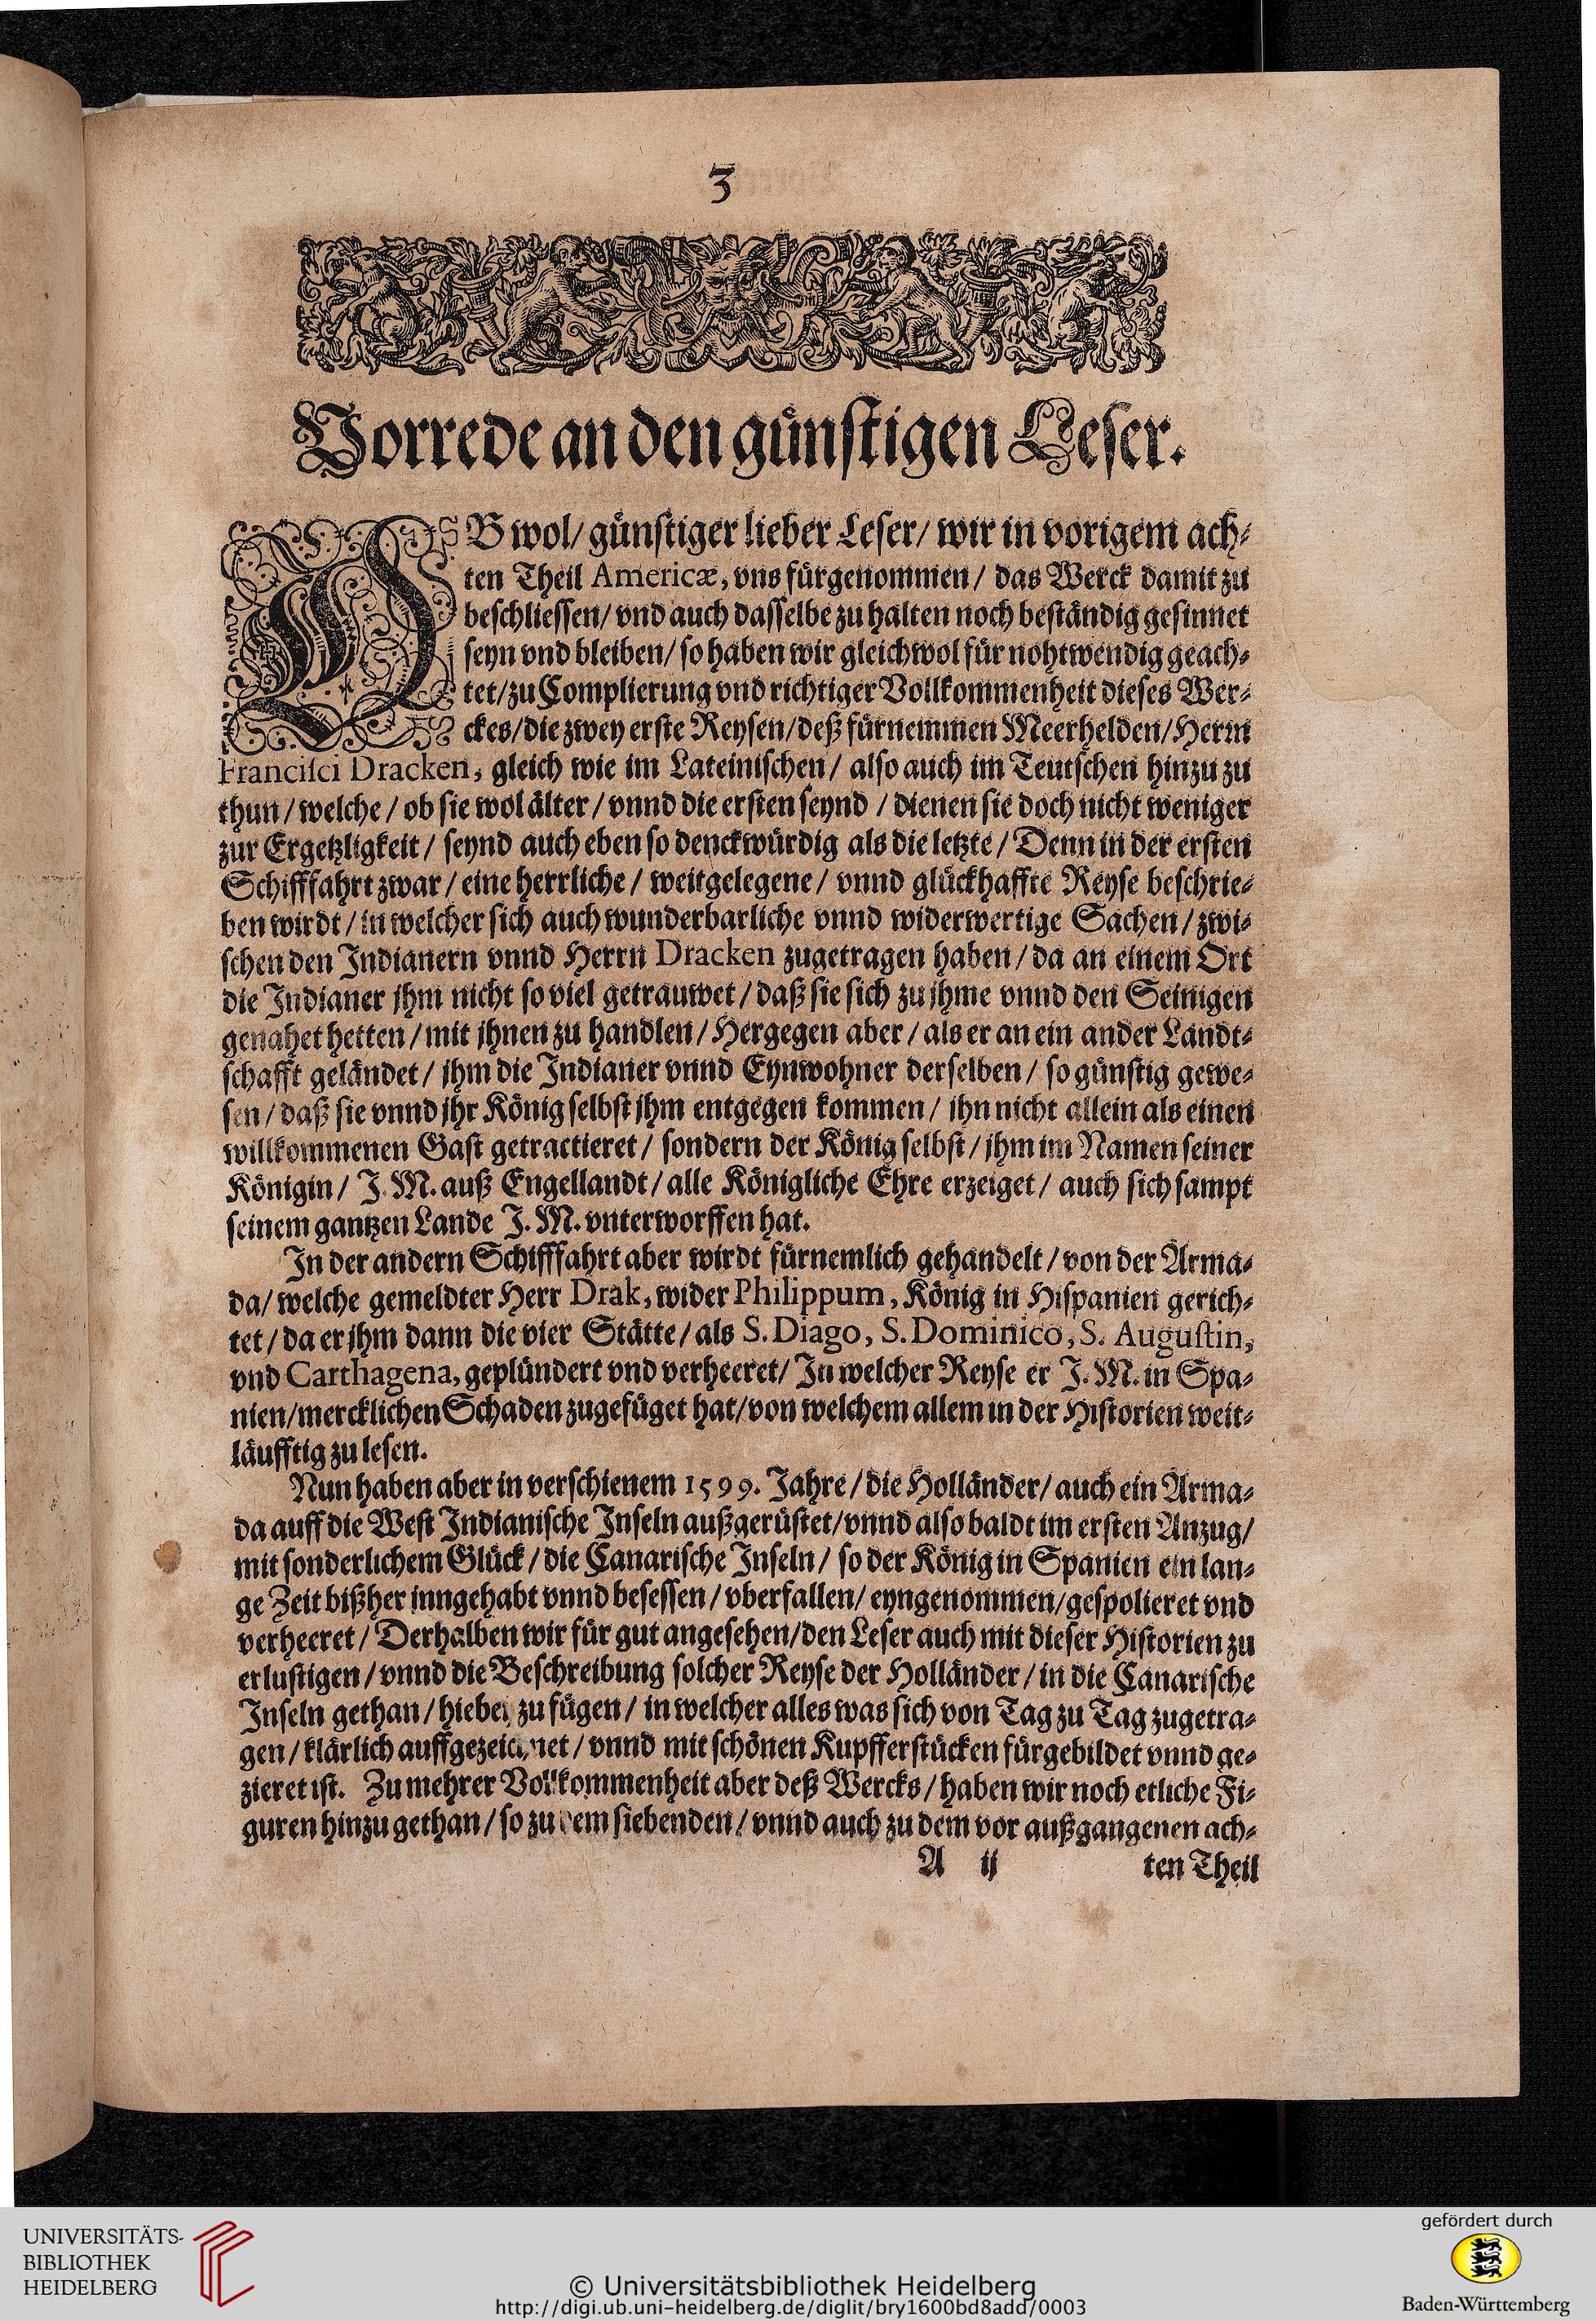 3
Vorrede an den günstigen Leser.
OB wol/ günstiger lieber Leser/ wir in vorigem ach-
ten Theil Americæ, vns fürgenommen/ das Werck damit zu
beschliessen/ vnd auch dasselbe zu halten noch beständig gesinnet
seyn vnd bleiben/ so haben wir gleichwol für nohtwendig geach-
tet/zu Complierung vnd richtiger Vollkommenheit dieses Wer-
ckes/die zwey erste Reysen/deß fürnemmen Meerhelden/Herrn
Francisci Dracken, gleich wie im Lateinischen/ also auch im Teutschen hinzu zu
thun/ welche/ ob sie wol älter/ vnnd die ersten seynd / dienen sie doch nicht weniger
zur Ergetzligkeit/ seynd auch eben so denckwürdig als die letzte/ Denn in der ersten
Schifffahrt zwar/ eine herrliche/ weitgelegene/ vnnd glückhaffte Reyse beschrie-
ben wirdt/ in welcher sich auch wunderbarliche vnnd widerwertige Sachen/ zwi-
schen den Indianern vnnd Herrn Dracken zugetragen haben/ da an einem Ort
die Indianer jhm nicht so viel getrauwet/ daß sie sich zu jhme vnnd den Seinigen
genahet hetten/ mit jhnen zu handlen/ Hergegen aber/ als er an ein ander Landt-
schafft geländet/ jhm die Indianer vnnd Eynwohner derselben/ so günstig gewe-
sen/ daß sie vnnd jhr König selbst jhm entgegen kommen/ jhn nicht allein als einen
willkommenen Gast getractieret/ sondern der König selbst/ jhm im Namen seiner
Königin/ J. M. auß Engellandt/ alle Königliche Ehre erzeiget/ auch sich sampt
seinem gantzen Lande J. M. vnterworffen hat.
In der andern Schifffahrt aber wirdt fürnemlich gehandelt/ von der Arma-
da/ welche gemeldter Herr Drak, wider Philippum, König in Hispanien gerich-
tet/ da er jhm dann die vier Stätte/ als S. Diago, S. Dominico, S. Augustin,
vnd Carthagena, geplündert vnd verheeret/ In welcher Reyse er J. M. in Spa-
nien/mercklichen Schaden zugefüget hat/von welchem allem in der Historien weit-
läufftig zu lesen.
Nun haben aber in verschienem 1599. Jahre/ die Holländer/ auch ein Arma-
da auff die West Indianische Inseln außgerüstet/vnnd also baldt im ersten Anzug/
mit sonderlichem Glück/ die Canarische Inseln/ so der König in Spanien ein lan-
ge Zeit bißher inngehabt vnnd besessen/ vberfallen/ eyngenommen/gespolieret vnd
verheeret/ Derhalben wir für gut angesehen/den Leser auch mit dieser Historien zu
erlustigen/ vnnd die Beschreibung solcher Reyse der Holländer/ in die Canarische
Inseln gethan/ hiebey zu fügen/ in welcher alles was sich von Tag zu Tag zugetra-
gen/ klärlich auffgezeichnet/ vnnd mit schönen Kupfferstücken fürgebildet vnnd ge-
zieret ist. Zu mehrer Vollkommenheit aber deß Wercks/ haben wir noch etliche Fi-
guren hinzu gethan/ so zu dem siebenden/ vnnd auch zu dem vor außgangenen ach-
A ij ten Theil
UNIVERSITÄTS-
BIBLIOTHEK
HEIDELBERG
© Universitätsbibliothek Heidelberg
http://digi.ub.uni-heidelberg.de/diglit/bry1600bd8add/0003
gefördert durch
Baden-Württemberg